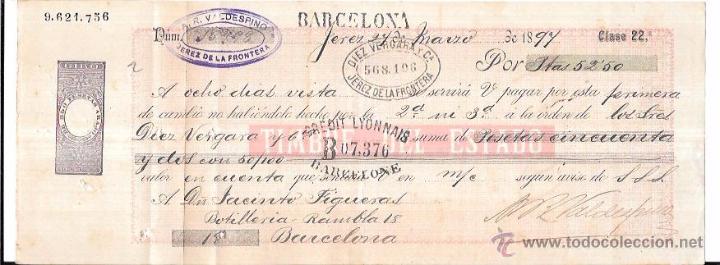 9.621.756
BARCELONA
A. R. VALDESPINO
JEREZ DE LA FRONTERA
Núm.
Jerez 27 de Marzo de 1897
Clase 22.ª
DIEZ VERGARA Y Cª
568.196
JEREZ DE LA FRONTERA
Por Ptas 52'50
A ocho dias vista se servirá V pagar por esta primera
de cambio no habiéndolo hecho por la 2ª ni 3ª á la órden de los Sres
Diez Vergara y Cª la suma de Pesetas cincuenta
TIMBRE DEL ESTADO
CRÉDIT LYONNAIS
B 07,376
BARCELONE
y dos con 50/100
valor en cuenta que sentará V en m/c según aviso de S.S.S.
A Dn Jacinto Figueras
Botilleria - Rambla 18
Barcelona
todocoleccion
www.todocoleccion.net